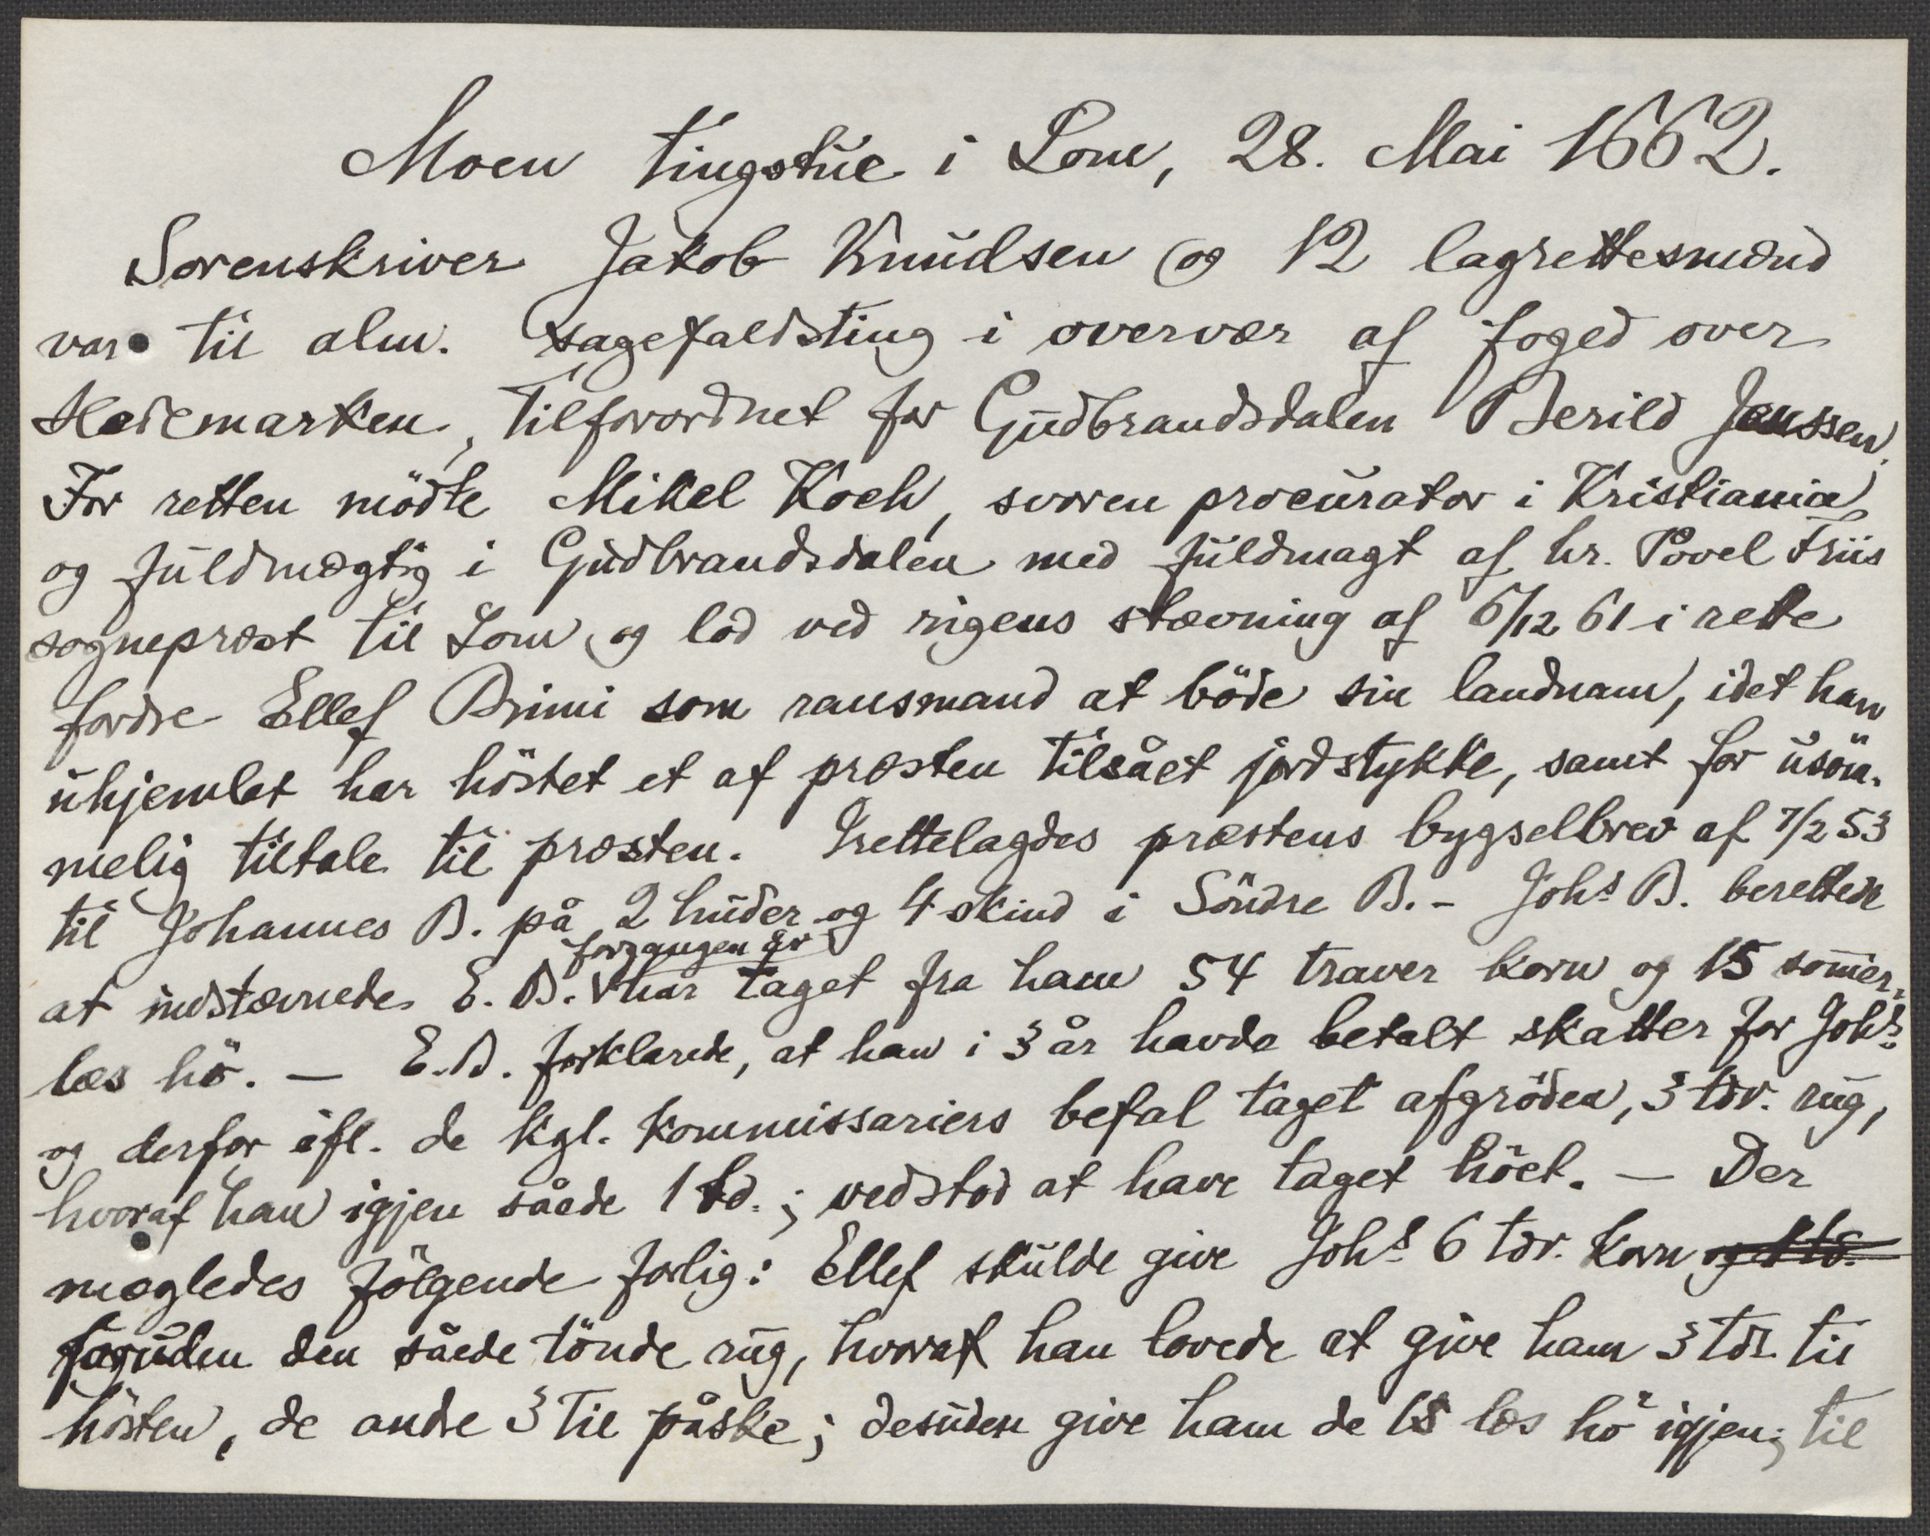 Moen tingstue i Lom, 28. Mai 1662.
Sorenskriver Jakob Knudsen og 12 lagrettesmænd
var til alm. sagefaldsting i overvær af foged over
Hedemarken, tilforordnet for Gudbrandsdalen Berild Janssen.
For retten mödte Mikel Koch, svoren procurator i Kristiania
og fuldmægtig i Gudbrandsdalen med fuldmagt af hr. Povel Friis
sognepræst til Lom og lod ved rigens stævning af 6/12 61 i rette
fordre Ellef Brimi som ransmand at böde sin landnam, idet han
uhjemlet har höstet et af præsten tilsået jordstykke, samt for usöm-
melig tiltale til præsten. Irettelagdes præstens bygselbrev af 7/2 53
til Johannes B. på 2 huder og 4 skind i Söndre B. - Johs B. berettede
at indstævnede E. B. forgangen år har taget fra ham 54 traver korn og 15 somer-
læs hö. — E. B. forklarede, at han i 3 år havde betalt skatter for Johs
og derfor ifl. de kgl. kommissariers befal taget afgröden, 3 tdr. rug,
hvoraf han igjen såede 1 td.; vedstod at have taget höet. — Der
mægledes fölgende forlig: Ellef skulde give Johs 6 tdr. korn og 1 td.
foruden den såede tönde rug, hvoraf han lovede at give ham 3 tdr. til
hösten, de andre 3 til påske; desuden give ham de 15 læs hö igjen; til